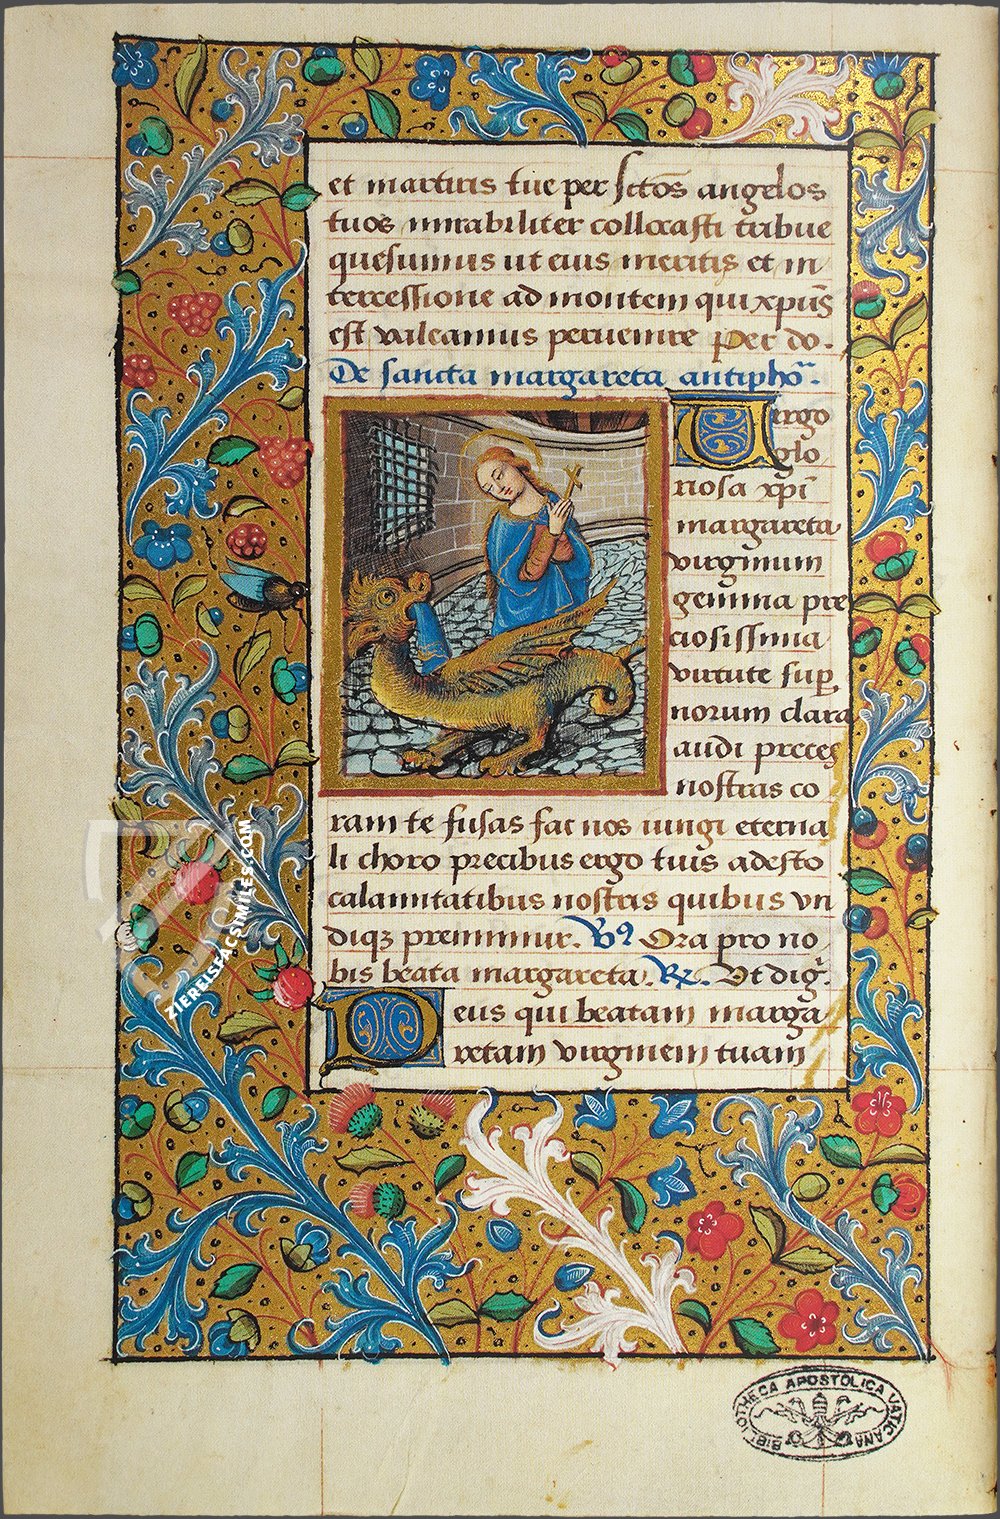 et martiris tue per sctōs angelos
tuos mirabiliter collocasti tribue
quesumus ut eius meritis et in
tercessione ad montem qui xpūs
est valeamus pervenire Per do.
De sancta margareta antiphō.
Virgo
glo
riosa xpī
margareta
virginum
gemma pre
ciosissima
virtute sup
norum clara
audi preces
nostras co
ram te fusas fac nos iungi eterna
li choro precibus ergo tuis adesto
calamitatibus nostris quibus vn
diqz premimur. V9 Ora pro no
bis beata margareta. R. Vt dig.
Deus qui beatam marga
retam virginem tuam
ZIEREISFACSIMILES.COM
BIBLIOTHECA APOSTOLICA VATICANA